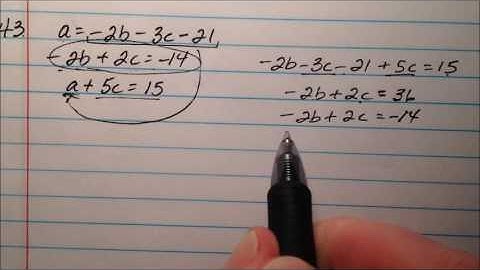 43.
a = -2b - 3c - 21
-2b + 2c = -14
a + 5c = 15
-2b - 3c - 21 + 5c = 15
-2b + 2c = 36
-2b + 2c = -14